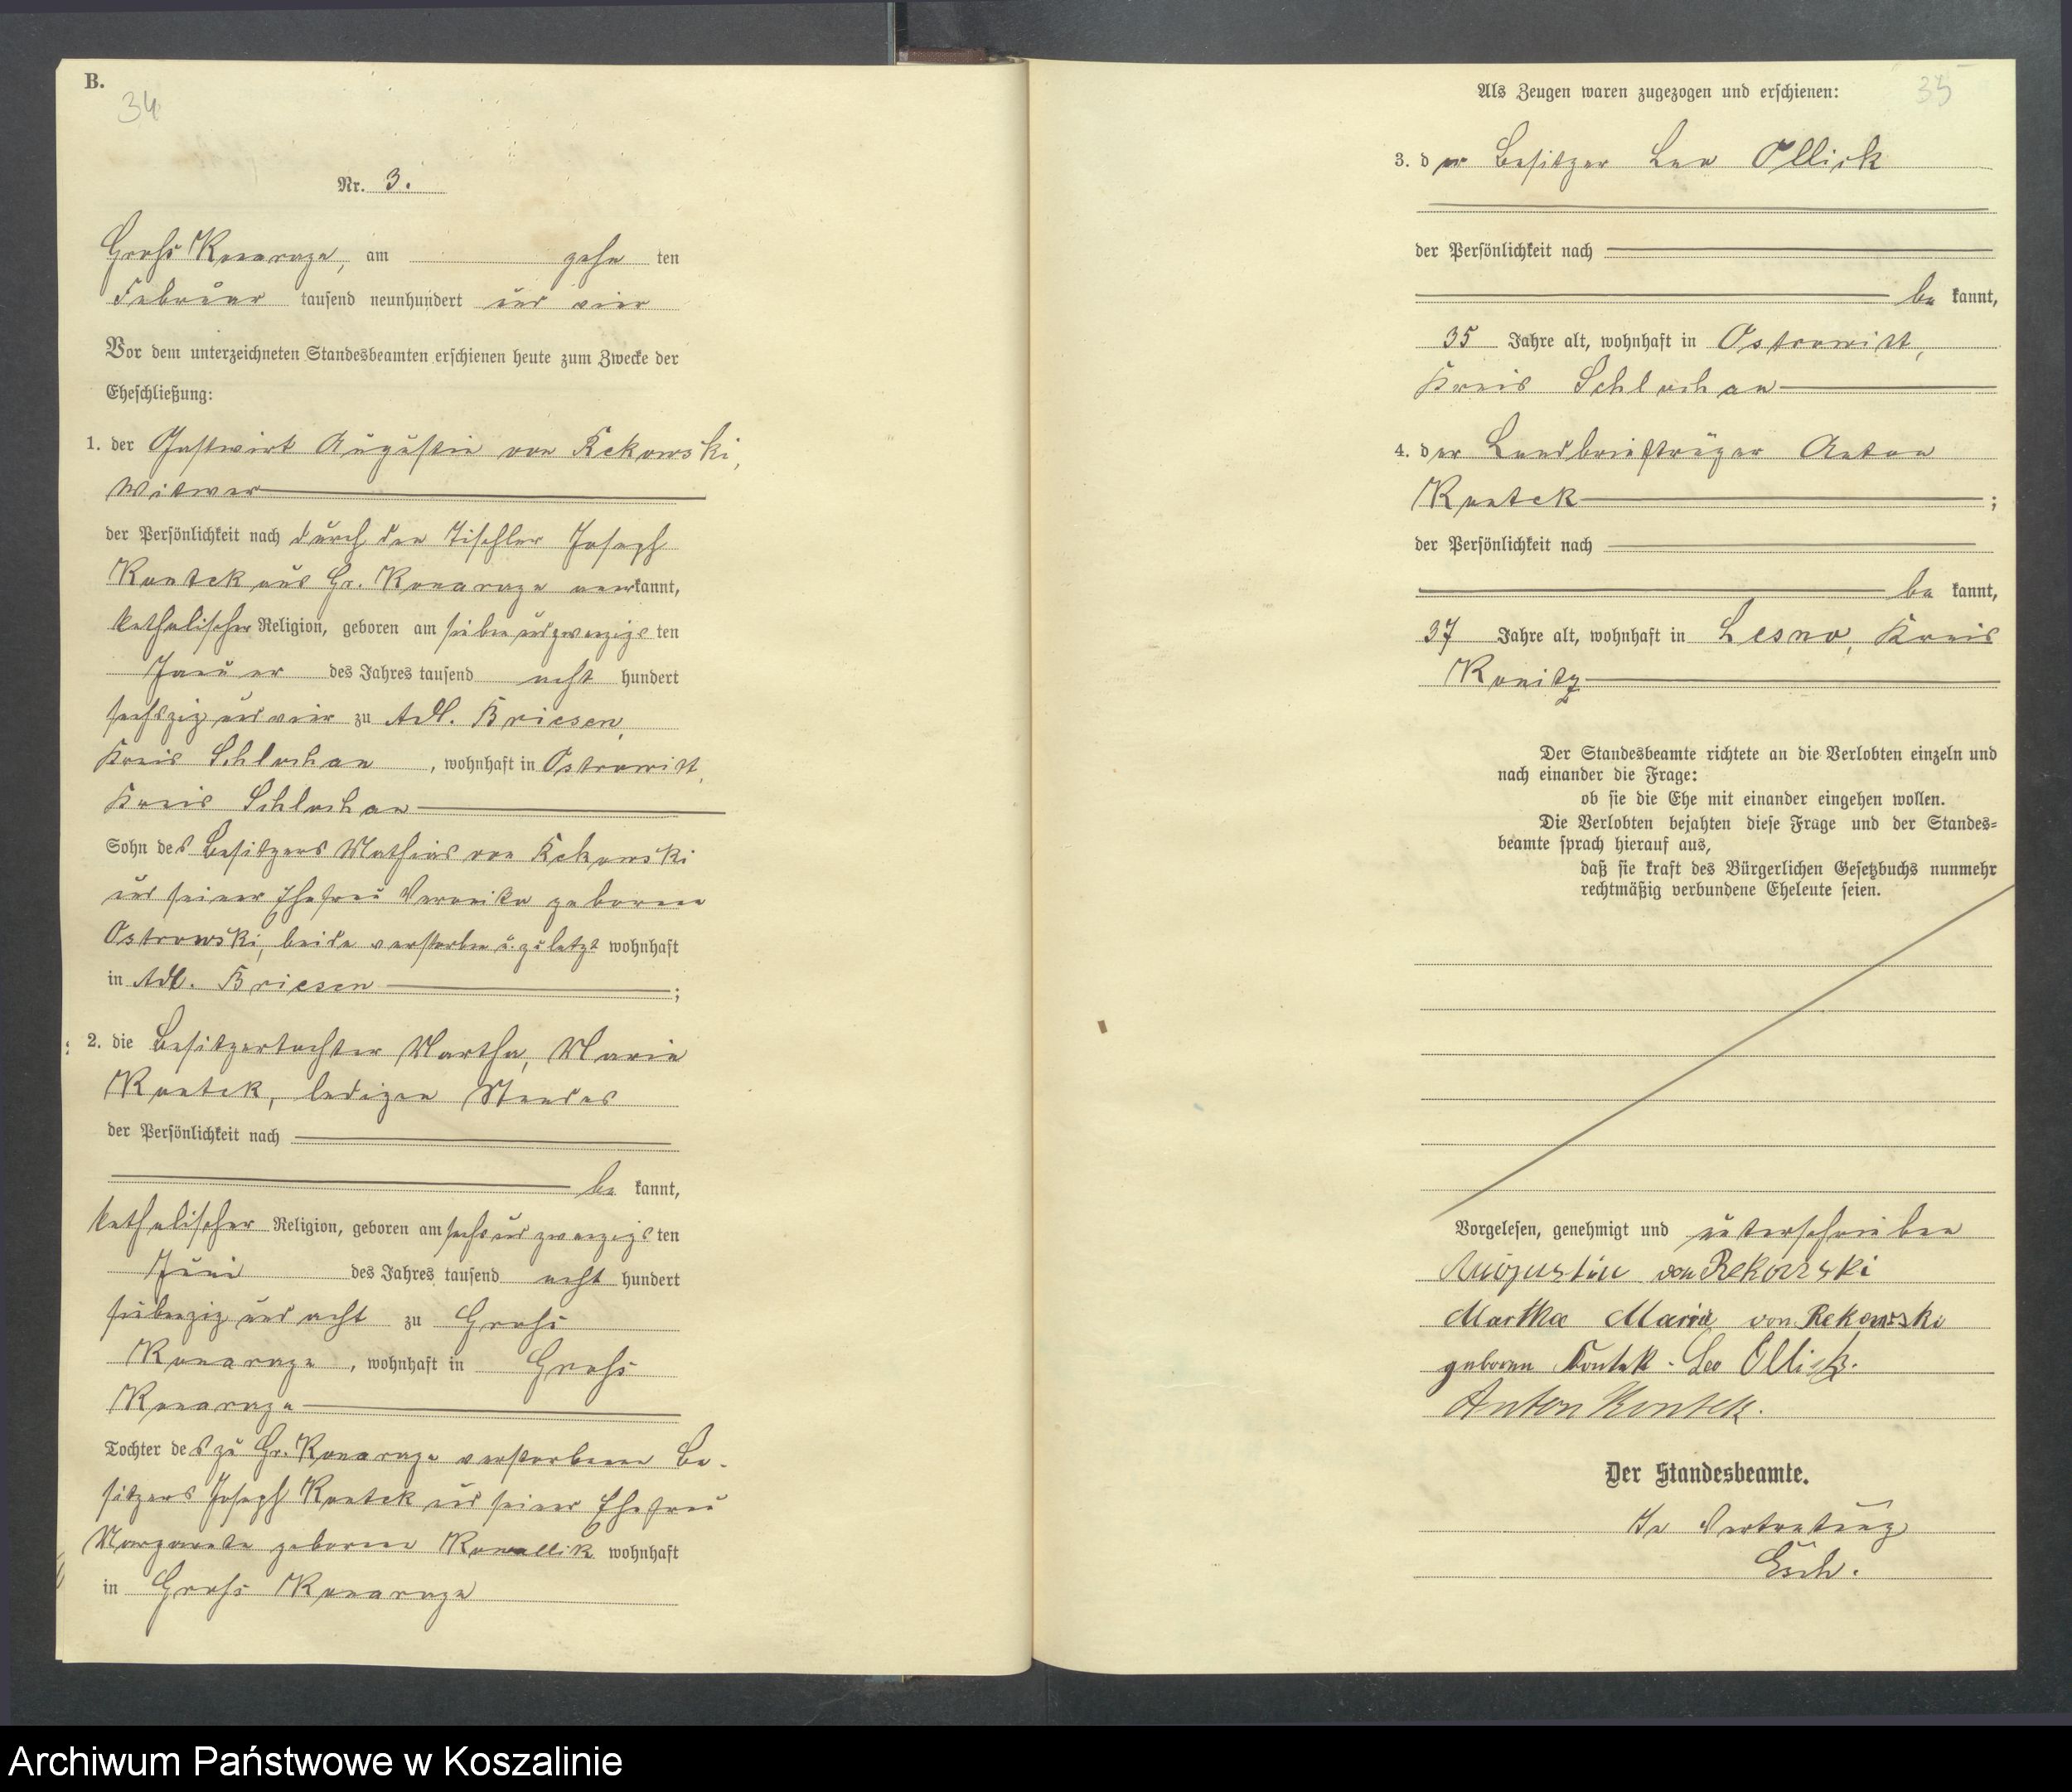 B.
34
Nr. 3.
Groß Konarczyn, am zehn ten
Februar tausend neunhundert und vier
Vor dem unterzeichneten Standesbeamten erschienen heute zum Zwecke der
Eheschließung:
1. der Gastwirt Augustin von Rekowski,
Witwer
der Persönlichkeit nach durch den Tischler Joseph
Kontek aus Gr. Konarczyn anerkannt,
katholischer Religion, geboren am siebenundzwanzigsten
Januar des Jahres tausend acht hundert
sechszig und vier zu Adl. Briesen,
Kreis Schlochau, wohnhaft in Ostrowitt,
Kreis Schlochau
Sohn des Besitzers Mathias von Rekowski
und seiner Ehefrau Veronika geborene
Ostrowski, beide verstorben u. zuletzt wohnhaft
in Adl. Briesen ;
2. die Besitzertochter Martha, Maria
Kontek, ledigen Standes
der Persönlichkeit nach
be kannt,
katholischer Religion, geboren am sechsundzwanzigsten
Juni des Jahres tausend acht hundert
siebenzig und acht zu Groß
, wohnhaft in Groß
Tochter des zu Gr. verstorbenen Be-
sitzers Joseph Kontek und seiner Ehefrau
Margareta geborene Kowallik wohnhaft
in Groß
Als Zeugen waren zugezogen und erschienen:
35
3. der Besitzer Leo Ollick
der Persönlichkeit nach
be kannt,
35 Jahre alt, wohnhaft in Ostrowitt,
Kreis Schlochau
4. der Landbriefträger Anton
Kontek ;
der Persönlichkeit nach
be kannt,
37 Jahre alt, wohnhaft in Lesno, Kreis
Konitz
Der Standesbeamte richtete an die Verlobten einzeln und
nach einander die Frage:
ob sie die Ehe mit einander eingehen wollen.
Die Verlobten bejahten diese Frage und der Standes-
beamte sprach hierauf aus,
daß sie kraft des Bürgerlichen Gesetzbuchs nunmehr
rechtmäßig verbundene Eheleute seien.
Vorgelesen, genehmigt und unterschrieben
Augustin von Rekowski
Martha Maria von Rekowski
geboren Kontek. Leo Ollick.
Anton Kontek.
Der Standesbeamte.
In Vertretung
Esch.
Archiwum Państwowe w Koszalinie